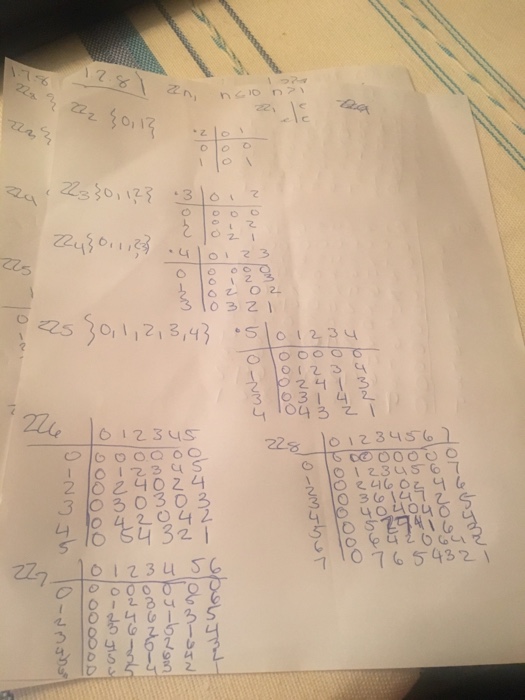 17.8)
ℤn, n≤10 n>1
ℤ2 {0,1}
·2 | 0 1
0 | 0 0
1 | 0 1
ℤ3 {0,1,2}
·3 | 0 1 2
0 | 0 0 0
1 | 0 1 2
2 | 0 2 1
ℤ4 {0,1,2,3}
·4 | 0 1 2 3
0 | 0 0 0 0
1 | 0 1 2 3
2 | 0 2 0 2
3 | 0 3 2 1
ℤ5 {0,1,2,3,4}
·5 | 0 1 2 3 4
0 | 0 0 0 0 0
1 | 0 1 2 3 4
2 | 0 2 4 1 3
3 | 0 3 1 4 2
4 | 0 4 3 2 1
ℤ6
| 0 1 2 3 4 5
0 | 0 0 0 0 0 0
1 | 0 1 2 3 4 5
2 | 0 2 4 0 2 4
3 | 0 3 0 3 0 3
4 | 0 4 2 0 4 2
5 | 0 5 4 3 2 1
ℤ8
| 0 1 2 3 4 5 6 7
0 | 0 0 0 0 0 0 0 0
1 | 0 1 2 3 4 5 6 7
2 | 0 2 4 6 0 2 4 6
3 | 0 3 6 1 4 7 2 5
4 | 0 4 0 4 0 4 0 4
5 | 0 5 2 7 4 1 6 3
6 | 0 6 4 2 0 6 4 2
7 | 0 7 6 5 4 3 2 1
ℤ7
| 0 1 2 3 4 5 6
0 | 0 0 0 0 0 0 0
1 | 0 1 2 3 4 5 6
2 | 0 2 4 6 1 3 5
3 | 0 3 6 2 5 1 4
4 | 0 4 1 5 2 6 3
5 | 0 5 3 1 6 4 2
6 | 0 6 5 4 3 2 1